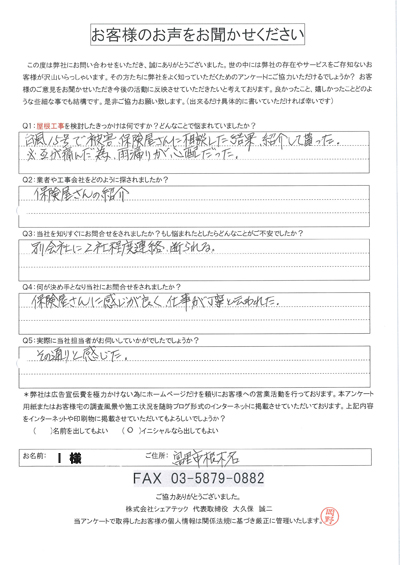 お客様のお声をお聞かせください
この度は弊社にお問い合わせをいただき、誠にありがとうございました。世の中には弊社の存在やサービスをご存知ないお
客様が沢山いらっしゃいます。その方たちに弊社をよく知っていただくためのアンケートにご協力いただけるでしょうか？ お客
様のご意見をお聞かせいただき今後の活動に反映させていただきたいと考えております。良かったこと、嬉しかったことどのよ
うな些細な事でも結構です。是非ご協力お願い致します。（出来るだけ具体的に書いていただければ幸いです）
Q1：屋根工事を検討したきっかけは何ですか？どんなことで悩まれていましたか？
台風15号で被害、保険屋さんに相談した結果、紹介して貰った。
瓦が痛んだ為、雨漏りが心配だった。
Q2：業者や工事会社をどのように探されましたか？
保険屋さんの紹介
Q3：当社を知りすぐにお問合せをされましたか？もし悩まれたとしたらどんなことがご不安でしたか？
別会社に2社程度連絡、断られる。
Q4：何が決め手となり当社にお問合せをされましたか？
保険屋さんに感じが良く、仕事が丁寧と云われた。
Q5：実際に当社担当者がお伺いしていかがでしたでしょうか？
その通りと感じた。
＊弊社は広告宣伝費を極力かけない為にホームページだけを頼りにお客様への営業活動を行っております。本アンケート
用紙またはお客様宅の調査風景や施工状況を随時ブログ形式のインターネットに掲載させていただいております。上記内容
をインターネットや印刷物に掲載させていただいてもよろしいでしょうか？
（　）名前を出してもよい　（○）イニシャルなら出してもよい
お名前：　I 様　ご住所：
FAX 03-5879-0882
ご協力ありがとうございました。
株式会社シェアテック 代表取締役 大久保 誠二
当アンケートで取得したお客様の個人情報は関係法規に基づき厳正に管理いたします。